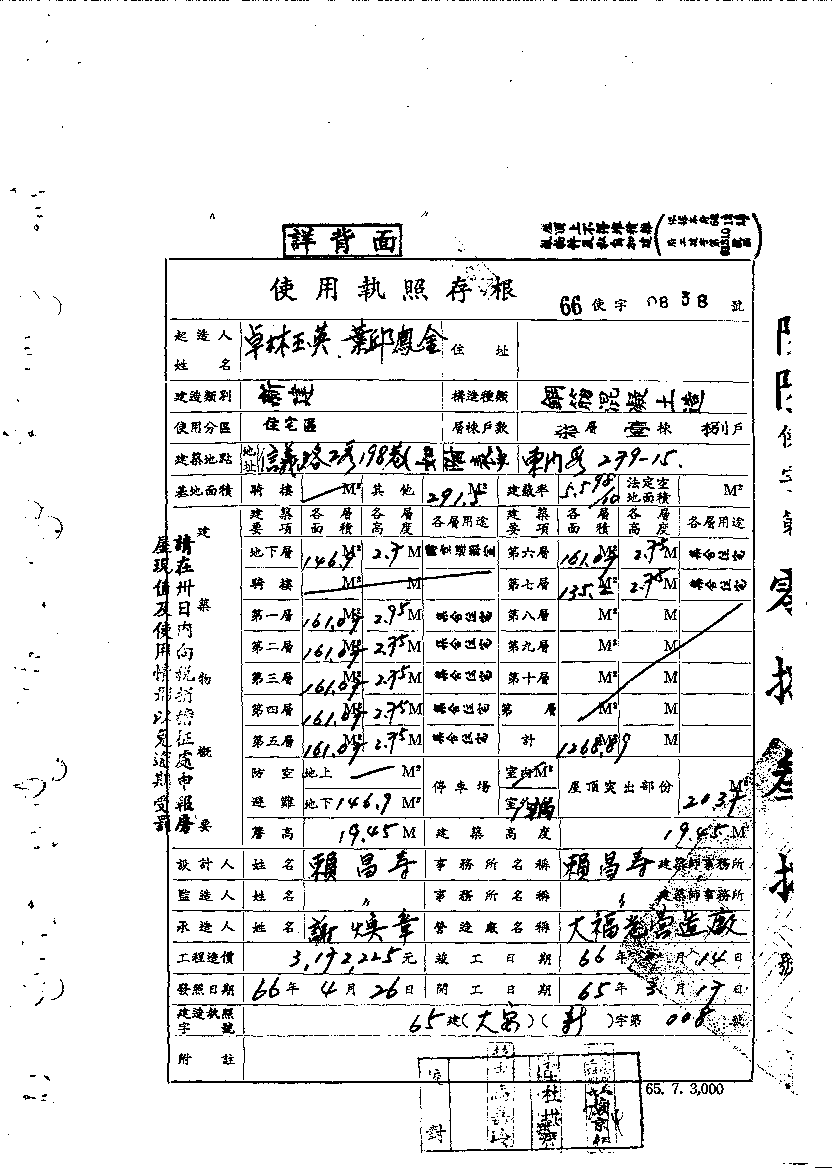 詳背面
使用執照存根
66 使字 0838 號
起造人姓名 卓林玉英、葉邱鳳金 住址
建造類別 新建 構造種類 鋼筋混凝土造
使用分區 住宅區 層棟戶數 柒層 壹棟 捌戶
建築地點 地址 信義路 198巷 東門段 279-15.
基地面積 騎樓 M² 其他 291.5 建蔽率 5.598/10 法定空地面積 M²
建築要項 各層面積 各層高度 各層用途 建築要項 各層面積 各層高度 各層用途
地下層 146.9 M² 2.7 M 第六層 161.09 M² 2.75 M 集合住宅
騎樓 M² M 第七層 135.2 M² 2.75 M 集合住宅
第一層 161.09 M² 2.95 M 集合住宅 第八層 M² M
第二層 161.09 M² 2.75 M 集合住宅 第九層 M² M
第三層 161.09 M² 2.75 M 集合住宅 第十層 M² M
第四層 161.09 M² 2.75 M 集合住宅 第 層 M² M
第五層 161.09 M² 2.75 M 集合住宅 計 1268.89 M²
防空避難 地上 M² 地下 146.9 M² 停車場 室內 M² 室外 屋頂突出部份 M² 20.37
簷高 19.45 M 建築高度 19.45 M
設計人 姓名 賴昌壽 事務所名稱 賴昌壽 建築師事務所
監造人 姓名 〃 事務所名稱 〃 建築師事務所
承造人 姓名 謝煥章 營造廠名稱 大福 營造廠
工程造價 3,192,225 元 竣工日期 66 年 月 14 日
發照日期 66 年 4 月 26 日 開工日期 65 年 3 月 17 日
建造執照字號 65 建(大安)(新)字第 008 號
附註
建築物概要
請在卅日內向稅捐稽征處申報房
屋現值及使用情形以免逾期受罰
校對
65. 7. 3,000
使字第
零拾
叁拾
號